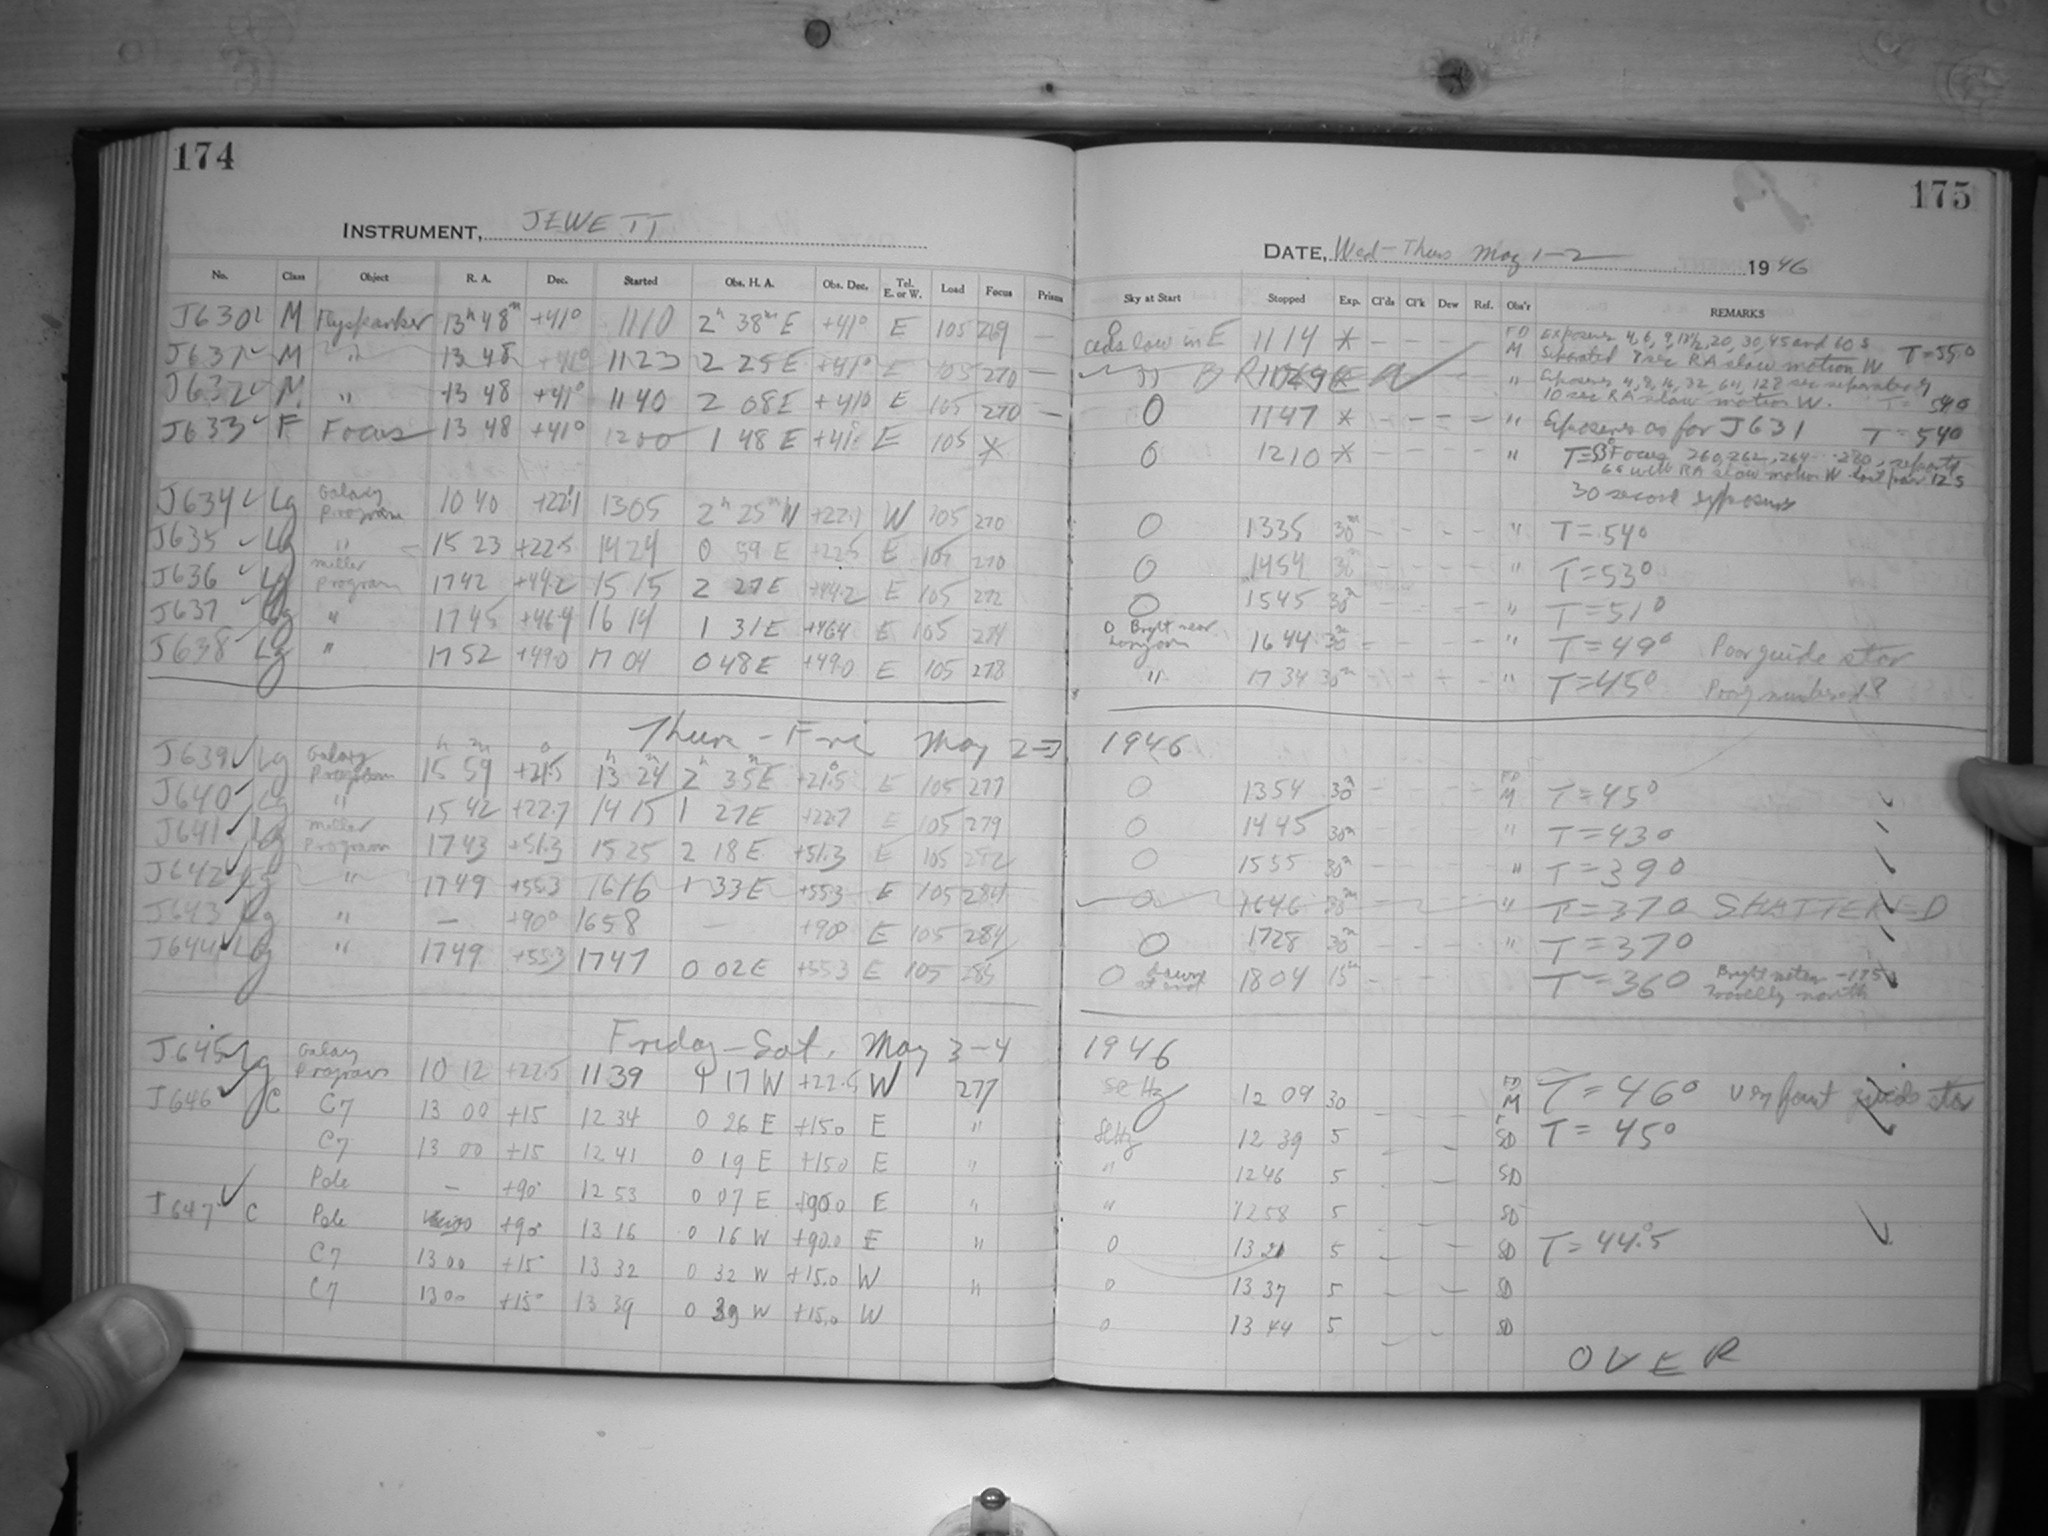 174
INSTRUMENT, JEWETT
No. Class Object R. A. Dec. Started Obs. H. A. Obs. Dec. Tel. E. or W. Load Focus Prism
J630 M 13h 48m +41° 1110 2h 38m E +41° E 105 269 —
J631 M " 13 48 +41° 1123 2 25 E +41° E 105 270 —
J632 M " 13 48 +41° 1140 2 08 E +41° E 105 270 —
J633 F Focus 13 48 +41° 1200 1 48 E +41° E 105 *
J634 Lg Galaxy program 10 40 +22.1 1305 2h 25m W +22.1 W 105 270
J635 Lg " 15 23 +22.5 1424 0 59 E +22.5 E 105 270
J636 Lg Miller program 17 42 +44.2 1515 2 27 E +44.2 E 105 272
J637 Lg " 17 45 +46.4 16 14 1 31 E +46.4 E 105 274
J638 Lg " 17 52 +49.0 17 04 0 48 E +49.0 E 105 278
Thurs - Fri May 2-3
J639 Lg Galaxy Program 15h 59m +21.5° 13h 24m 2h 35m E +21.5° E 105 277
J640 Lg " 15 42 +22.7 1415 1 27 E +22.7 E 105 279
J641 Lg Miller Program 17 43 +51.3 1525 2 18 E +51.3 E 105 282
J642 Lg " 17 49 +55.3 1616 1 33 E +55.3 E 105 284
J643 Lg " — +90° 1658 — +90° E 105 284
J644 Lg " 17 49 +55.3 1747 0 02 E +55.3 E 105 285
Friday - Sat. May 3-4
J645 Lg Galaxy Program 10 12 +22.5 11 39 17 W +22.5 W 277
J646 C C7 13 00 +15 12 34 0 26 E +15.0 E "
C7 13 00 +15 12 41 0 19 E +15.0 E "
Pole — +90° 12 53 0 07 E +90.0 E "
J647 C Pole +90° 13 16 0 16 W +90.0 E "
C7 13 00 +15° 13 32 0 32 W +15.0 W "
C7 13 00 +15° 13 39 0 39 W +15.0 W
175
DATE, Wed - Thurs May 1-2 1946
Sky at Start Stopped Exp. Cl'ds Cl'k Dew Ref. Obs'r REMARKS
low in E 1114 * — — — — FD M Exposures 4, 6, 9, 13½, 20, 30, 45 and 60 s
Separated 7 sec RA slow motion W T=55°
" " Exposures 4, 8, 16, 32, 64, 128 sec separated by
10 sec RA slow motion W. T= 54°
0 1147 * — — — — " Exposures as for J631 T=54°
0 1210 * — — — — " T=53° Focus 260, 262, 264 -- 280, separated
6s with RA slow motion W last pair 12s
30 second exposures
0 1335 30m — — — — " T=54°
0 1454 30m — — — — " T=53°
0 1545 30m — — — — " T=51°
0 Bright near horizon 1644 30m — — — — " T=49° Poor guide star
" 1734 30m — — — — " T=45°
1946
0 1354 30m — — — — FD M T=45°
0 1445 30m " T=43°
0 1555 30m " T=39°
0 1646 30m — — — — " T=37° SHATTERED
0 1728 30m — — — — " T=37°
0 Dawn at end 1804 15m T=36° Bright meteor -1755
travelly north
1946
Sl Hz 12 09 30 FD M T=46° Very faint guide star
Sl Hz 12 39 5 SD T=45°
" 12 46 5 SD
" 12 58 5 SD
0 13 21 5 SD T=44.5°
0 13 37 5 SD
0 13 44 5 SD
OVER